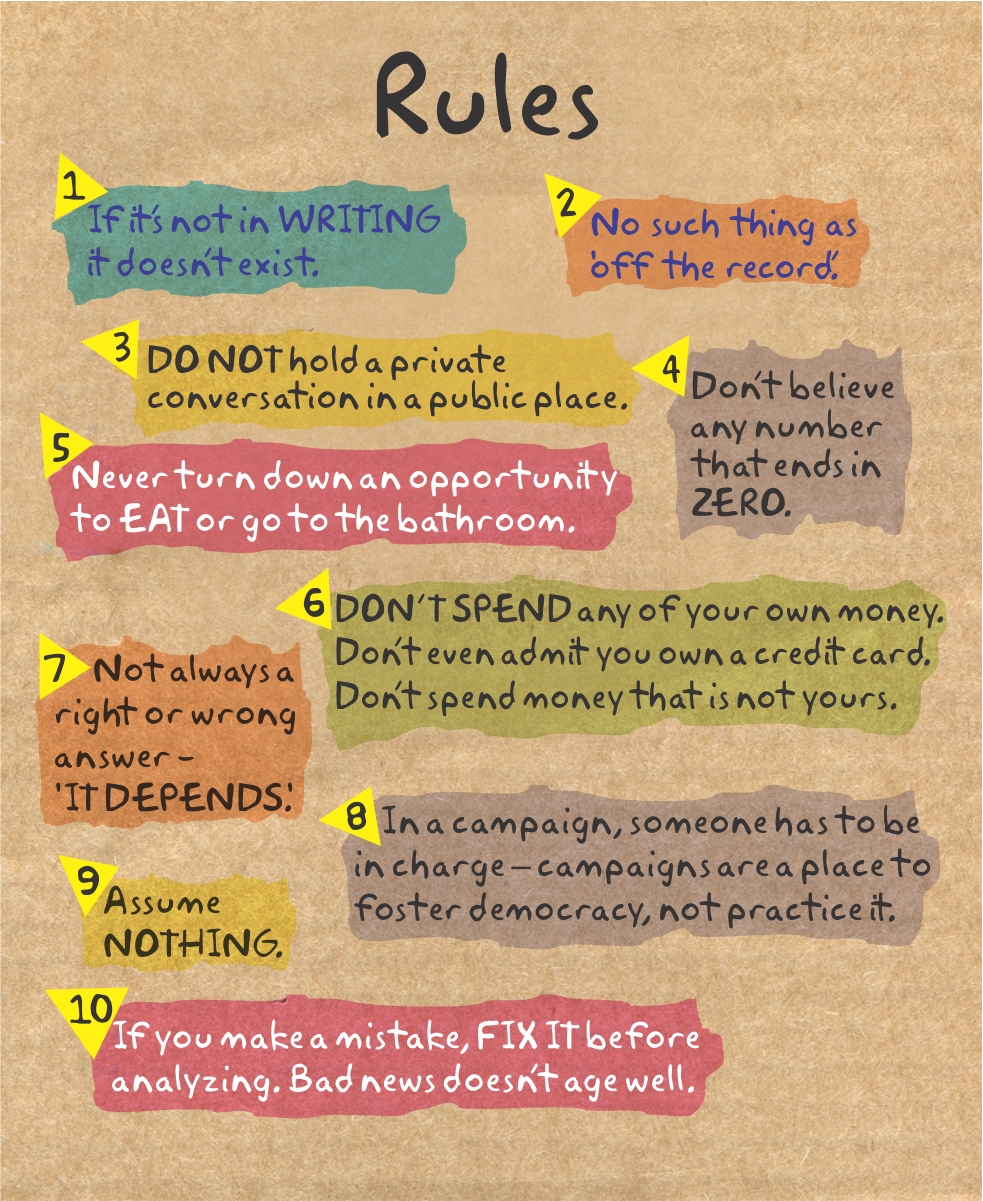 Rules
1
If it's not in WRITING
it doesn't exist.
2
No such thing as
'off the record'.
3
DO NOT hold a private
conversation in a public place.
4
Don't believe
any number
that ends in
ZERO.
5
Never turn down an opportunity
to EAT or go to the bathroom.
6
DON'T SPEND any of your own money.
Don't even admit you own a credit card.
Don't spend money that is not yours.
7
Not always a
right or wrong
answer –
'IT DEPENDS.'
8
In a campaign, someone has to be
in charge – campaigns are a place to
foster democracy, not practice it.
9
Assume
NOTHING.
10
If you make a mistake, FIX IT before
analyzing. Bad news doesn't age well.